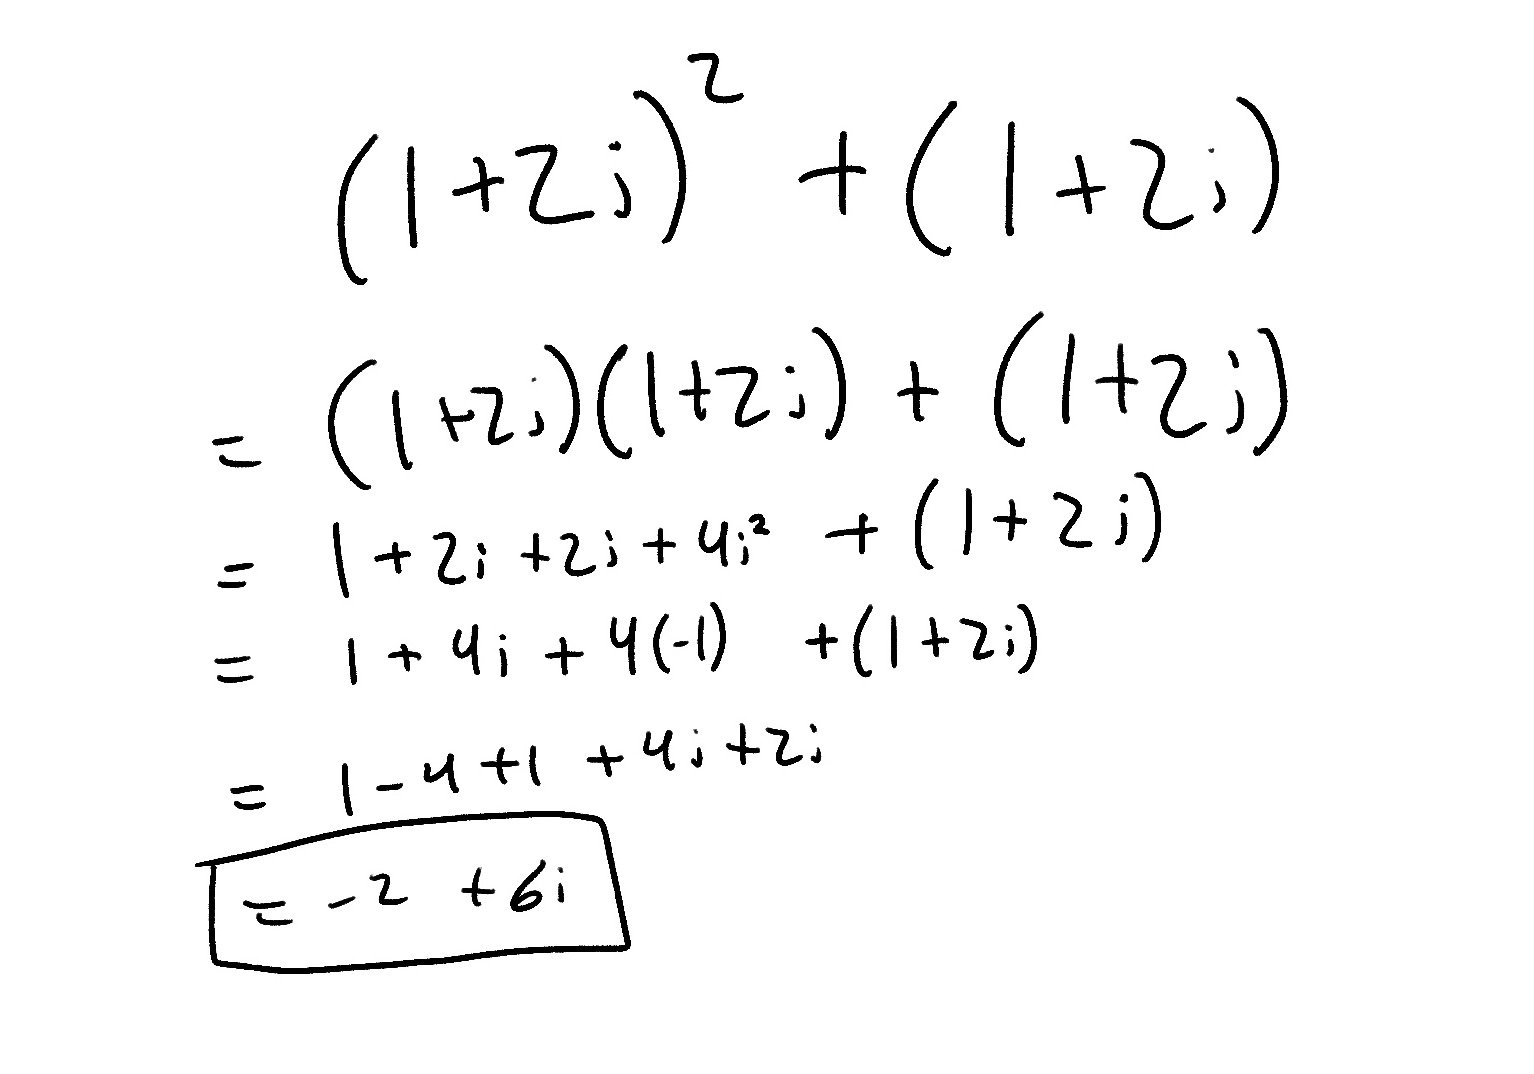 (1+2i)² + (1+2i)
= (1+2i)(1+2i) + (1+2i)
= 1+2i+2i+4i² + (1+2i)
= 1+4i+4(-1) +(1+2i)
= 1-4+1+4i+2i
= -2 +6i